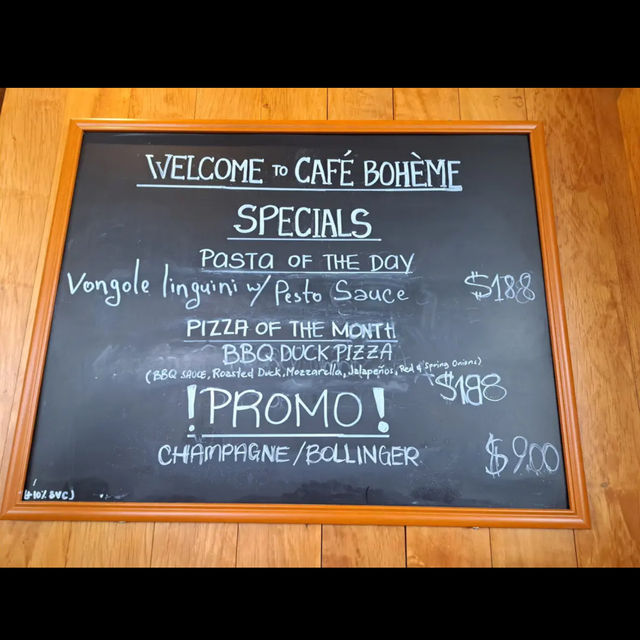 WELCOME TO CAFÉ BOHÈME
SPECIALS
PASTA OF THE DAY
Vongole linguini w/ Pesto Sauce $188
PIZZA OF THE MONTH
BBQ DUCK PIZZA
(BBQ SAUCE, Roasted Duck, Mozzarella, Jalapeños, Red & Spring Onions)
$188
!PROMO!
CHAMPAGNE/BOLLINGER $900
(+10% SVC)